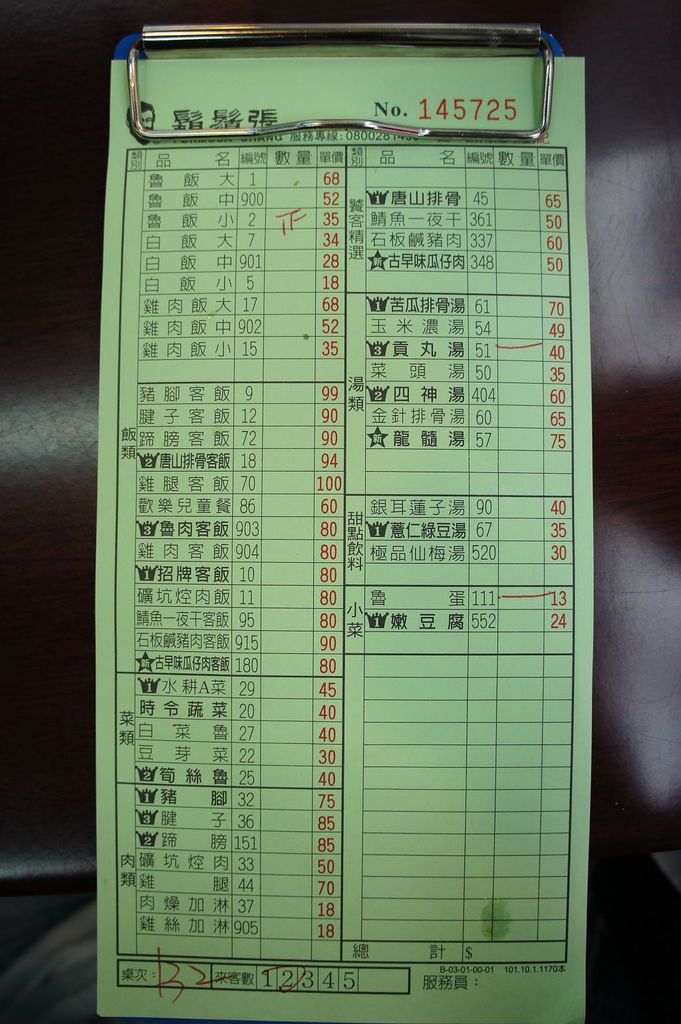 鬍鬚張 No. 145725
FORMOSA CHANG 服務專線:0800281
類別 品名 編號 數量 單價
飯類
魯飯大 1 68
魯飯中 900 52
魯飯小 2 正 35
白飯大 7 34
白飯中 901 28
白飯小 5 18
雞肉飯大 17 68
雞肉飯中 902 52
雞肉飯小 15 35
豬腳客飯 9 99
腱子客飯 12 90
蹄膀客飯 72 90
2 唐山排骨客飯 18 94
雞腿客飯 70 100
歡樂兒童餐 86 60
3 魯肉客飯 903 80
雞肉客飯 904 80
1 招牌客飯 10 80
礦坑焢肉飯 11 80
鯖魚一夜干客飯 95 80
石板鹹豬肉客飯 915 90
新 古早味瓜仔肉客飯 180 80
菜類
1 水耕A菜 29 45
時令蔬菜 20 40
白菜魯 27 40
豆芽菜 22 30
2 筍絲魯 25 40
肉類
1 豬腳 32 75
3 腱子 36 85
2 蹄膀 151 85
礦坑焢肉 33 50
雞腿 44 70
肉燥加淋 37 18
雞絲加淋 905 18
類別 品名 編號 數量 單價
饕客精選
1 唐山排骨 45 65
鯖魚一夜干 361 50
石板鹹豬肉 337 60
新 古早味瓜仔肉 348 50
湯類
1 苦瓜排骨湯 61 70
玉米濃湯 54 49
3 貢丸湯 51 一 40
菜頭湯 50 35
2 四神湯 404 60
金針排骨湯 60 65
新 龍髓湯 57 75
甜點飲料
銀耳蓮子湯 90 40
1 薏仁綠豆湯 67 35
極品仙梅湯 520 30
小菜
魯蛋 111 一 13
1 嫩豆腐 552 24
總計 $
桌次: B2 來客數 1 2 3 4 5
B-03-01-00-01 101.10.1.1170本
服務員: